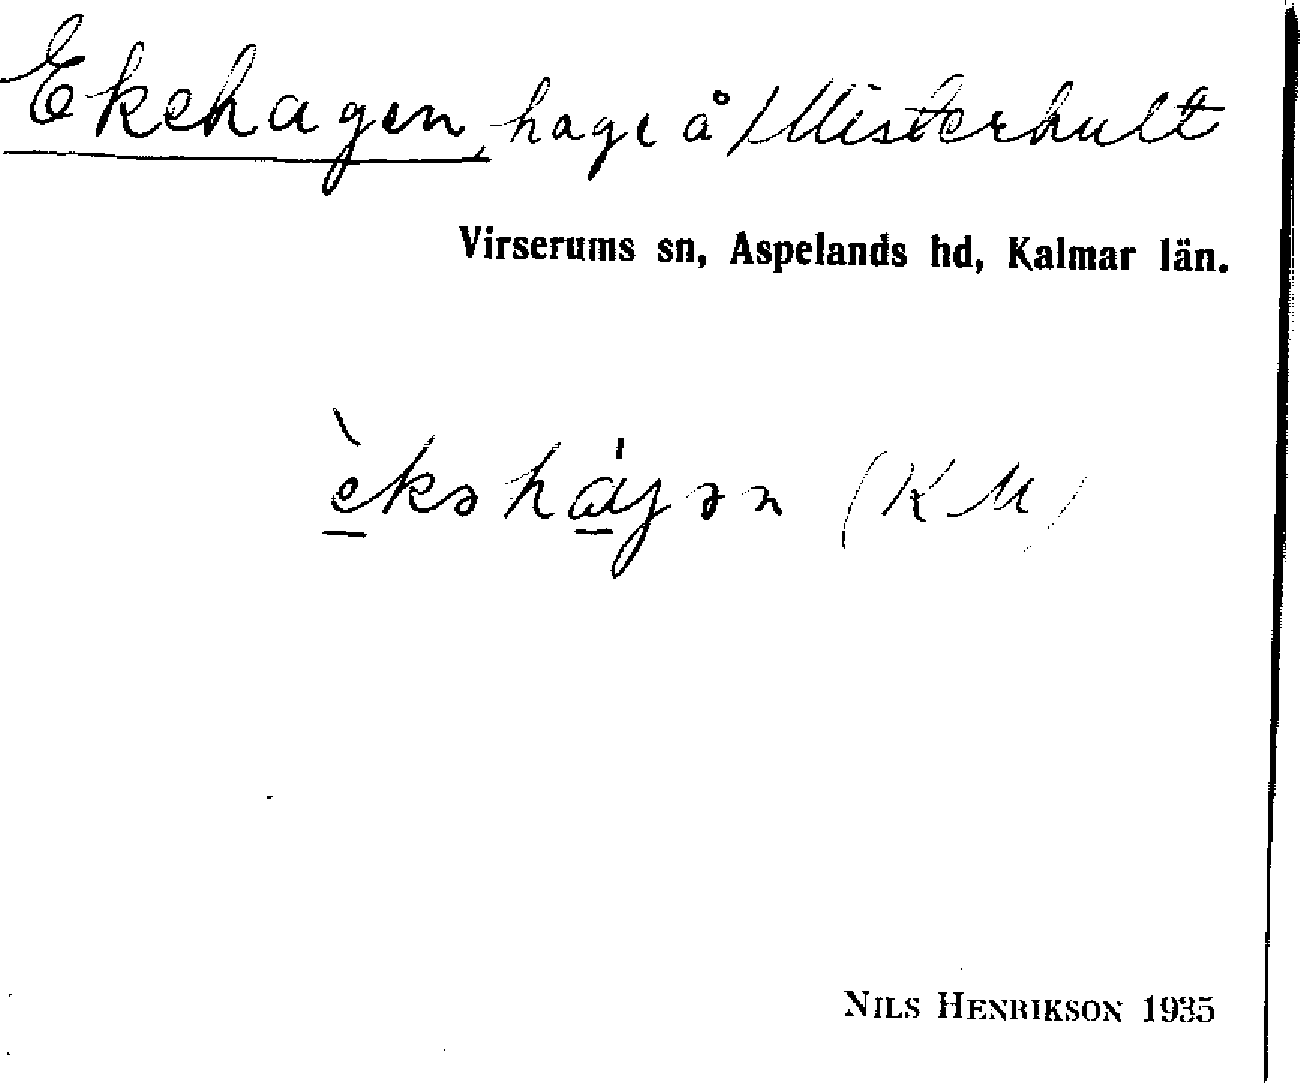 Ekehagen, hage å Misterhult
Virserums sn, Aspelands hd, Kalmar län.
èkəhágən (KM)
NILS HENRIKSON 1935